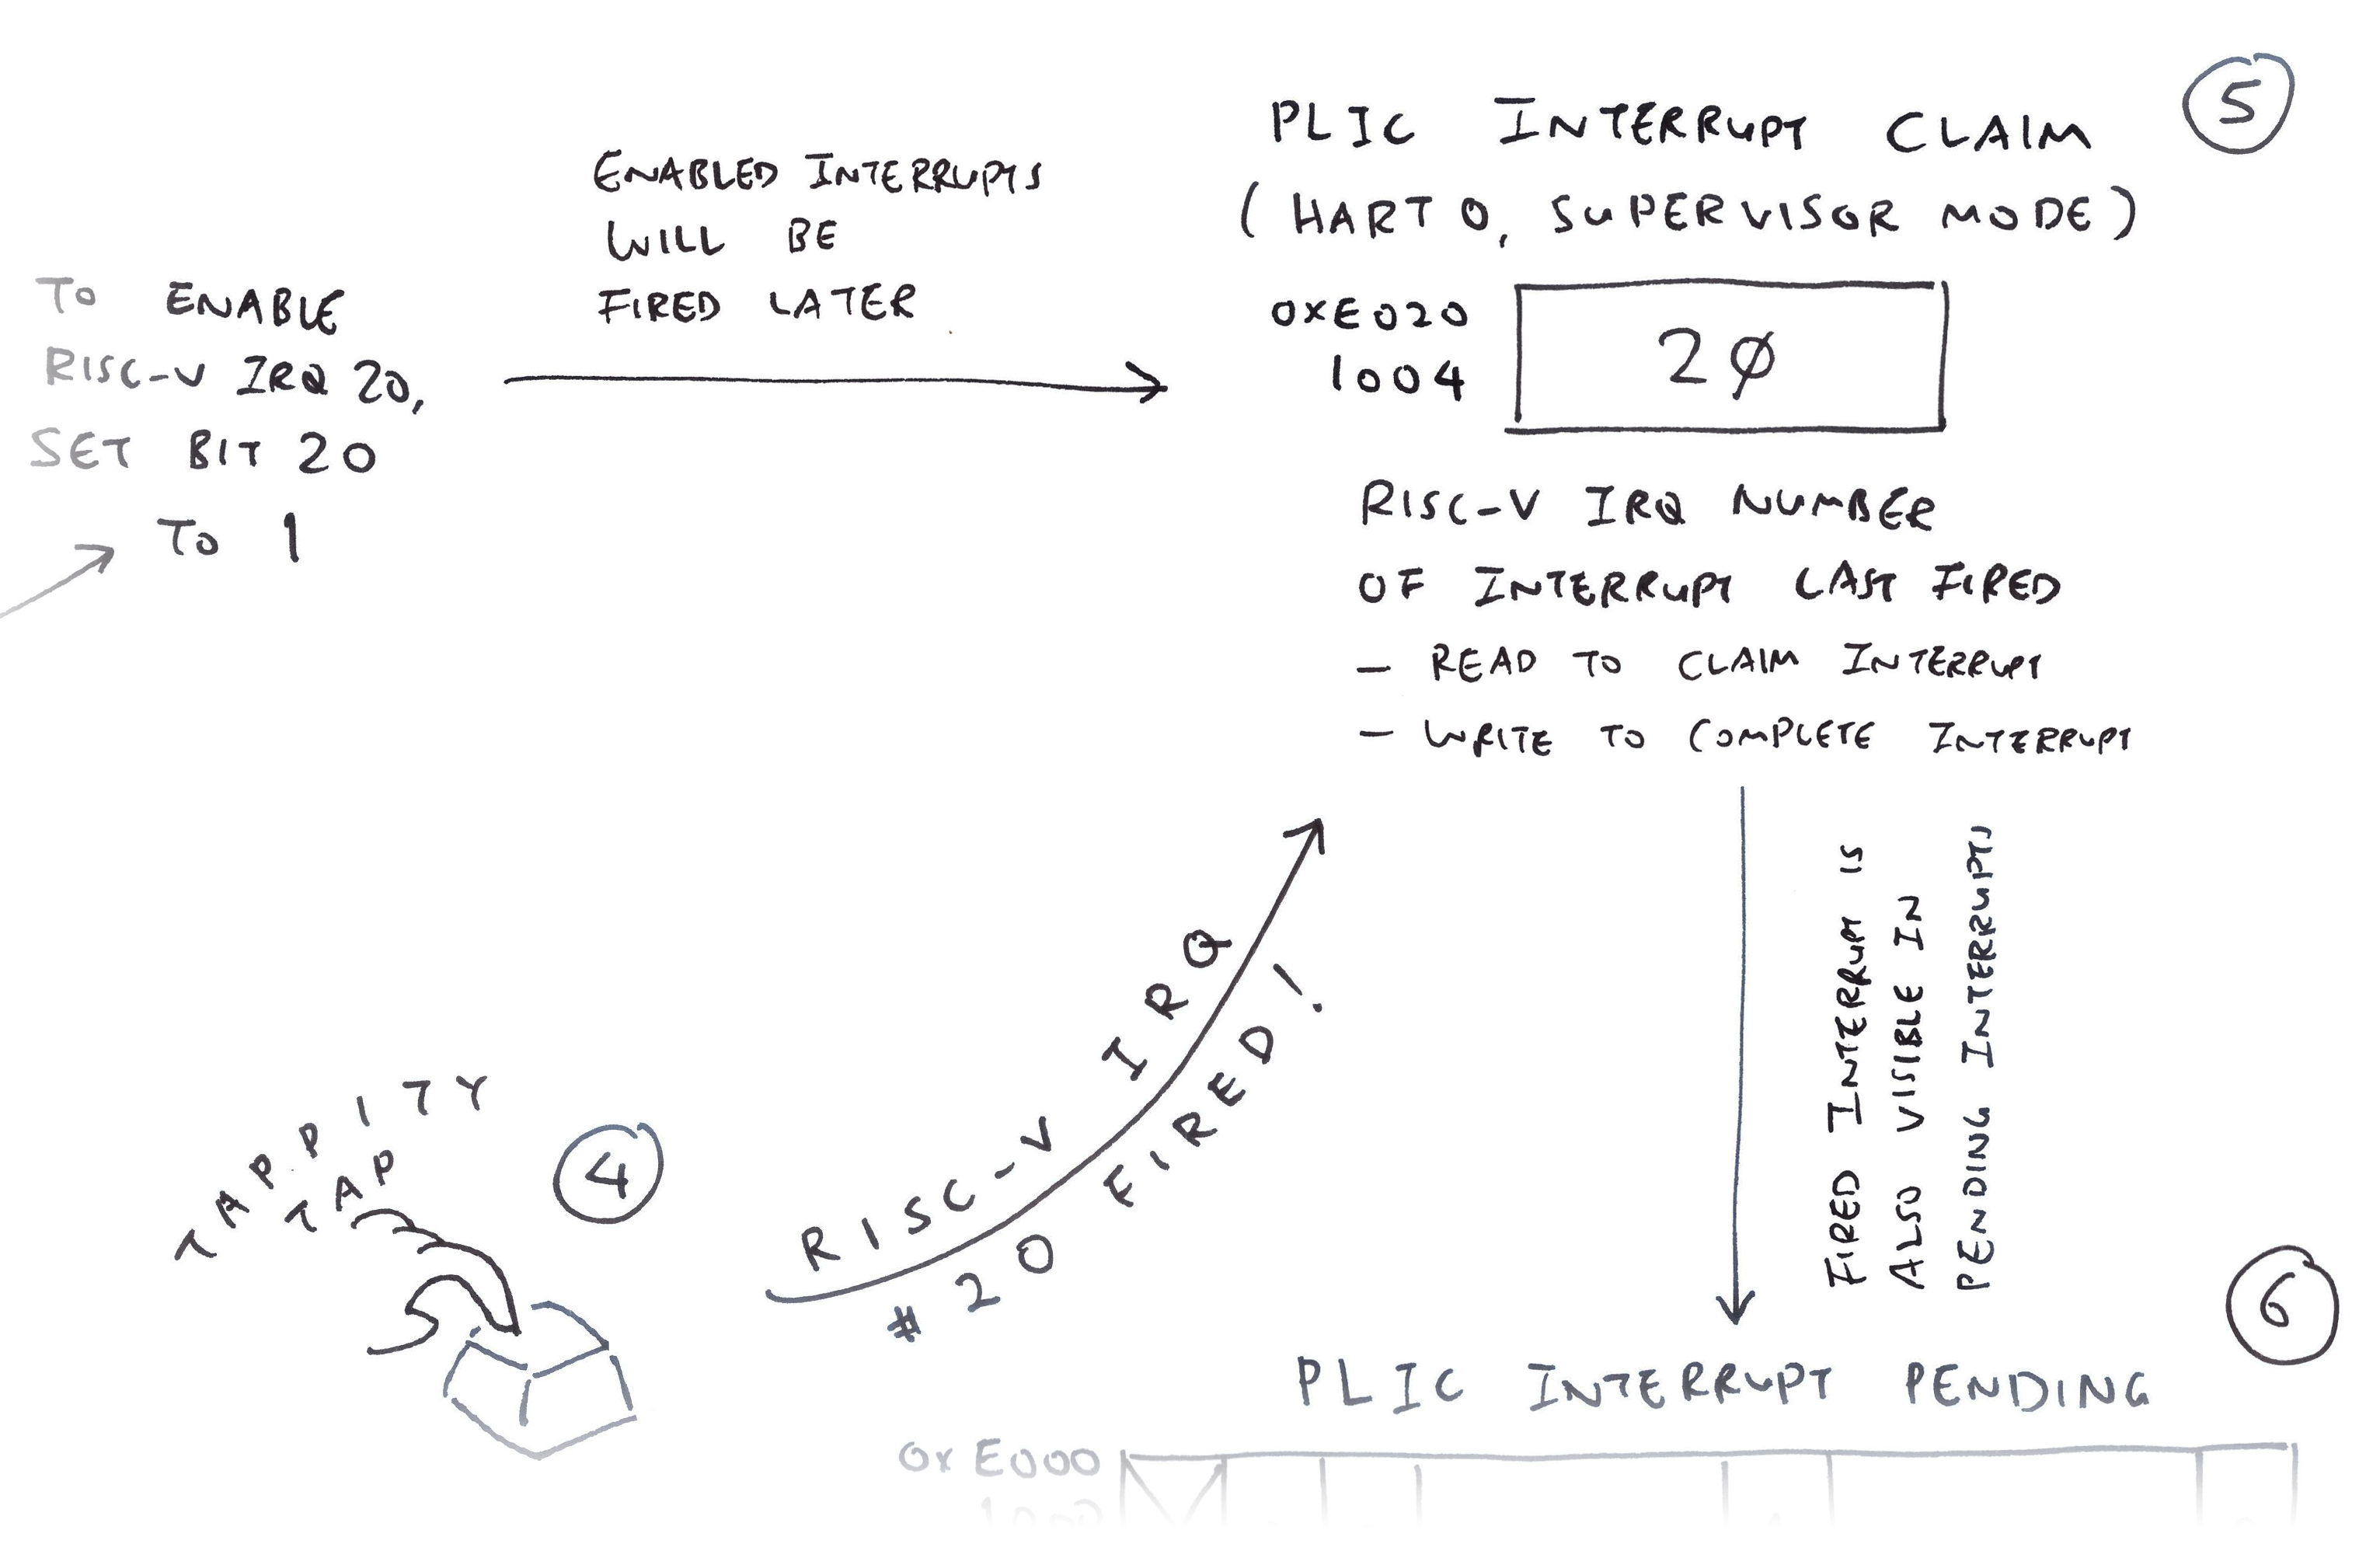 TO ENABLE
RISC-V IRQ 20,
SET BIT 20
TO 1
ENABLED INTERRUPTS
WILL BE
FIRED LATER
PLIC INTERRUPT CLAIM
5
(HART 0, SUPERVISOR MODE)
0XE020
1004
20
RISC-V IRQ NUMBER
OF INTERRUPT LAST FIRED
- READ TO CLAIM INTERRUPT
- WRITE TO COMPLETE INTERRUPT
TAPPITY
TAP
4
RISC-V IRQ
#20 FIRED!
FIRED INTERRUPT IS
ALSO VISIBLE IN
PENDING INTERRUPTS
6
PLIC INTERRUPT PENDING
0xE000